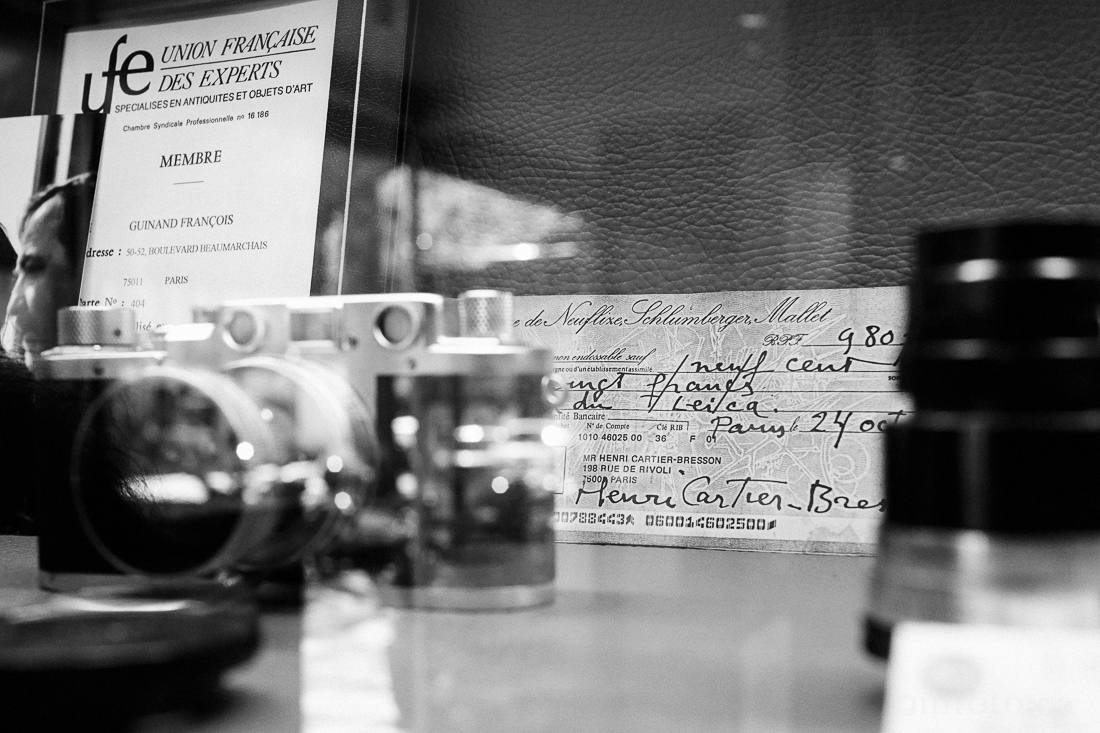 ufe UNION FRANÇAISE
DES EXPERTS
SPECIALISES EN ANTIQUITES ET OBJETS D'ART
Chambre Syndicale Professionnelle no 16 186
MEMBRE
GUINAND FRANÇOIS
dresse : 50-52, BOULEVARD BEAUMARCHAIS
75011 PARIS
arte No : 404
lisé
e de Neuflize, Schlumberger, Mallet
B.P.F. 980
non endossable sauf
neuf cent
ingt francs
du Leica.
ité Bancaire
N° de Compte Clé RIB
Paris le 24 oct
1010 46025 00 36 F 0
MR HENRI CARTIER-BRESSON
198 RUE DE RIVOLI
75001 PARIS
Henri Cartier-Bres
00788443A 060014602500